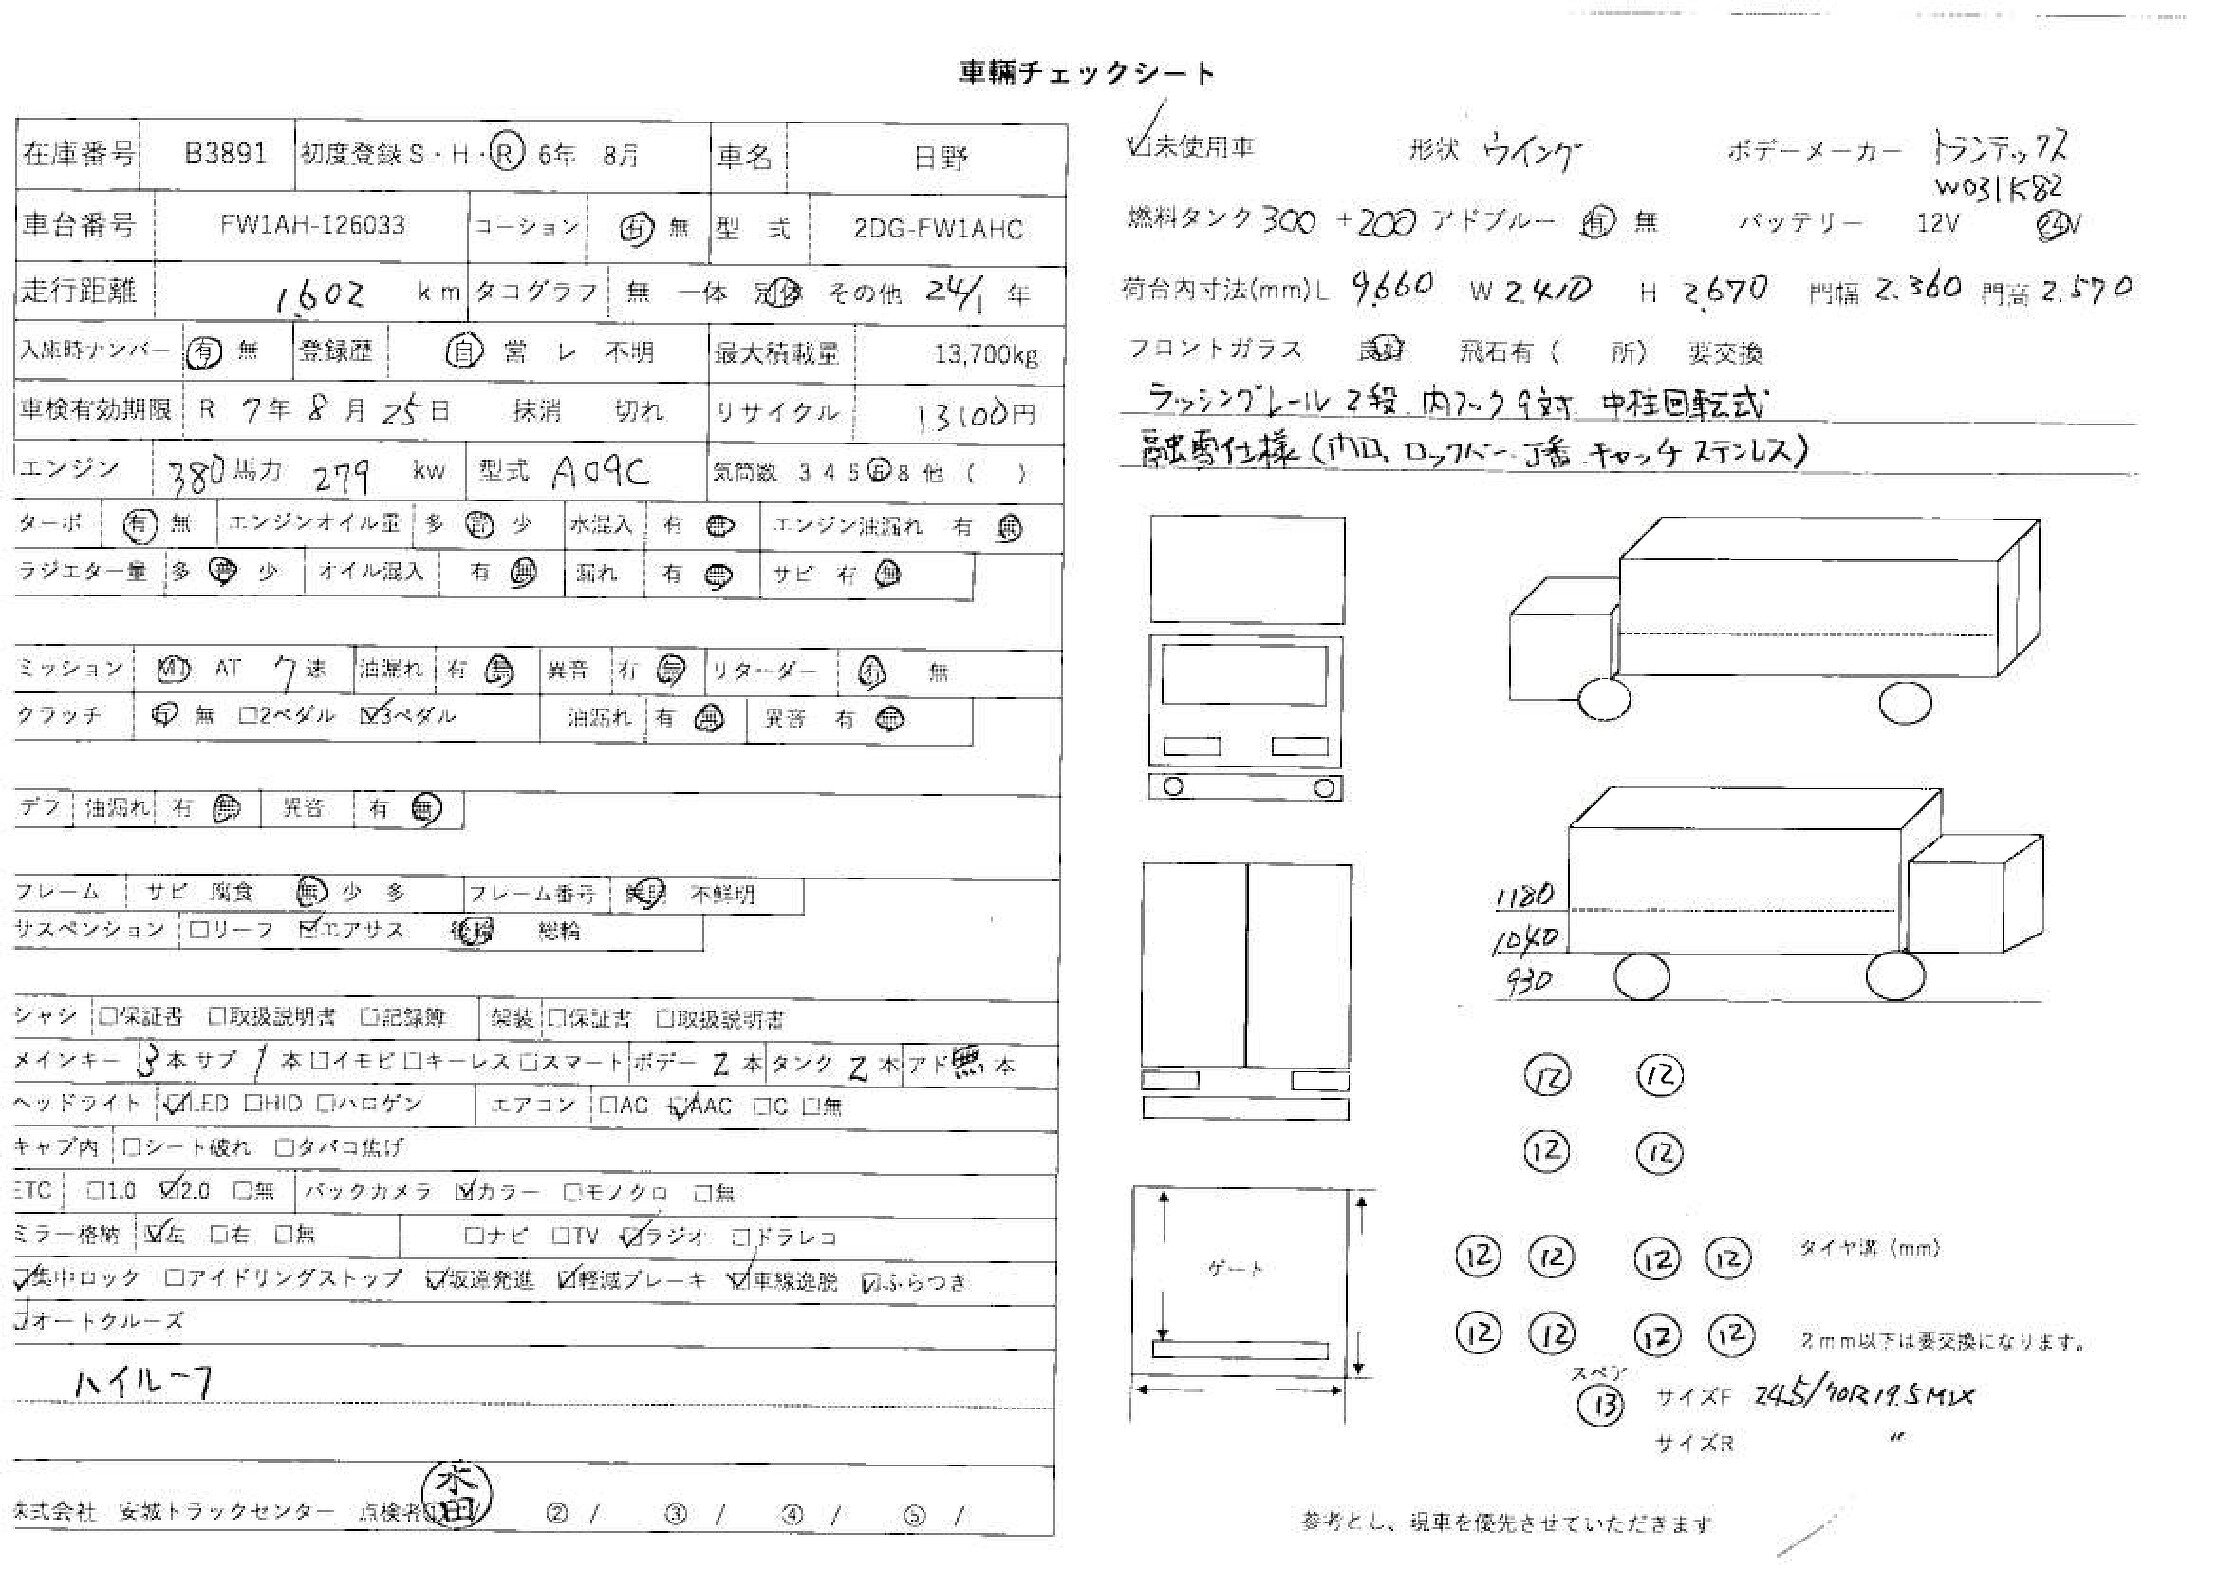 車輛チェックシート
在庫番号 B3891 初度登録 S・H・R 6年 8月 車名 日野
車台番号 FW1AH-126033 コーション 有 無 型 式 2DG-FW1AHC
走行距離 1,602 km タコグラフ 無 一体 別体 その他 24/1 年
入庫時ナンバー 有 無 登録歴 自 営 レ 不明 最大積載量 13,700kg
車検有効期限 R 7年 8月 25日 抹消 切れ リサイクル 13100円
エンジン 380馬力 279 kw 型式 A09C 気筒数 3 4 5 6 8 他 ( )
ターボ 有 無 エンジンオイル量 多 適 少 水混入 有 無 エンジン油漏れ 有 無
ラジエター量 多 適 少 オイル混入 有 無 漏れ 有 無 サビ 有 無
ミッション MT AT 7速 油漏れ 有 無 異音 有 無 リターダー 有 無
クラッチ 有 無 □2ペダル ☑3ペダル 油漏れ 有 無 異音 有 無
デフ 油漏れ 有 無 異音 有 無
フレーム サビ 腐食 無 少 多 フレーム番号 鮮明 不鮮明
サスペンション □リーフ ☑エアサス 後輪 総輪
シャシ □保証書 □取扱説明書 □記録簿 架装 □保証書 □取扱説明書
メインキー 3本 サブ 1本 □イモビ □キーレス □スマート ボデー 2本 タンク 2本 アド 無 本
ヘッドライト ☑LED □HID □ハロゲン エアコン □AC ☑AAC □C □無
キャブ内 □シート破れ □タバコ焦げ
ETC □1.0 ☑2.0 □無 バックカメラ ☑カラー □モノクロ □無
ミラー格納 ☑左 □右 □無 □ナビ □TV ☑ラジオ □ドラレコ
☑集中ロック □アイドリングストップ ☑坂道発進 ☑軽減ブレーキ ☑車線逸脱 ☑ふらつき
☑オートクルーズ
ハイルーフ
株式会社 安城トラックセンター 点検者① ② / ③ / ④ / ⑤ /
☑未使用車 形状 ウイング ボデーメーカー トランテックス
W031K82
燃料タンク 300 +200 アドブルー 有 無 バッテリー 12V 24V
荷台内寸法(mm) L 9,660 W 2,410 H 2,670 門幅 2,360 門高 2,570
フロントガラス 良好 飛石有 ( 所) 要交換
ラッシングレール 2段 内フック9対 中柱回転式
融雪仕様(門口、ロックバー、丁番 キャッチ ステンレス)
1180
1040
930
12 12
12 12
12 12 12 12 タイヤ溝 (mm)
12 12 12 12 2mm以下は要交換になります。
ゲート
スペア
13 サイズF 245/70R19.5 MIX
サイズR 〃
参考とし、現車を優先させていただきます